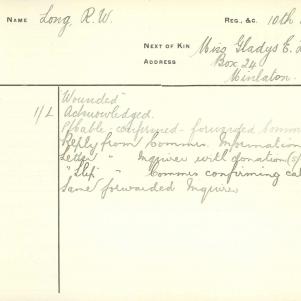 NAME Long, R.W. REG., &C. 10th
NEXT OF KIN Miss Gladys E.
ADDRESS Box 24
Minlaton.
"Wounded"
1/L Acknowledged.
confirmed - forwarded
Reply from Commrs.
Letter " Inquirer with donation
"Slip" " Commrs confirming
Same forwarded Inquirer